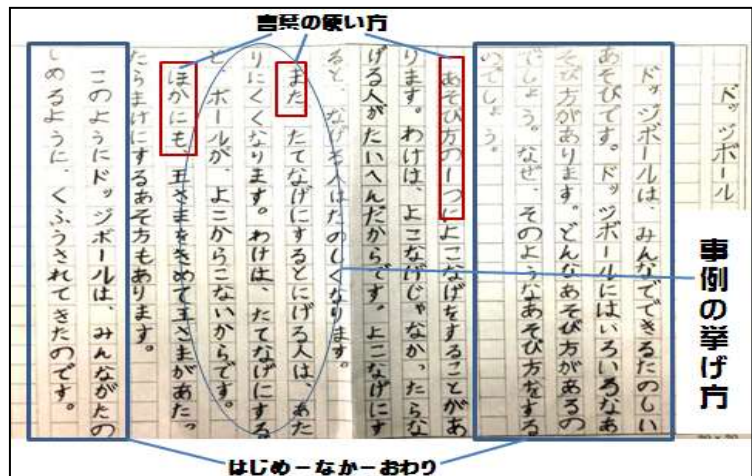 言葉の使い方
ドッジボール
ドッジボールは、みんなでできるたのしい
あそびです。ドッジボールにはいろいろなあ
そび方があります。どんなあそび方があるの
でしょう。なぜ、そのようなあそび方をする
のでしょう。
あそび方の一つによこなげをすることがあ
ります。わけは、よこなげじゃなかったらな
げる人がたいへんだからです。よこなげにす
ると、なげる人はたのしくなります。
また、たてなげにするとにげる人は、あた
りにくくなります。わけは、たてなげにする
と、ボールが、よこからこないからです。
ほかにも、王さまをきめて王さまがあたっ
たらまけにするあそ方もあります。
このようにドッジボールは、みんながたの
しめるように、くふうされてきたのです。
事例の挙げ方
はじめーなかーおわり